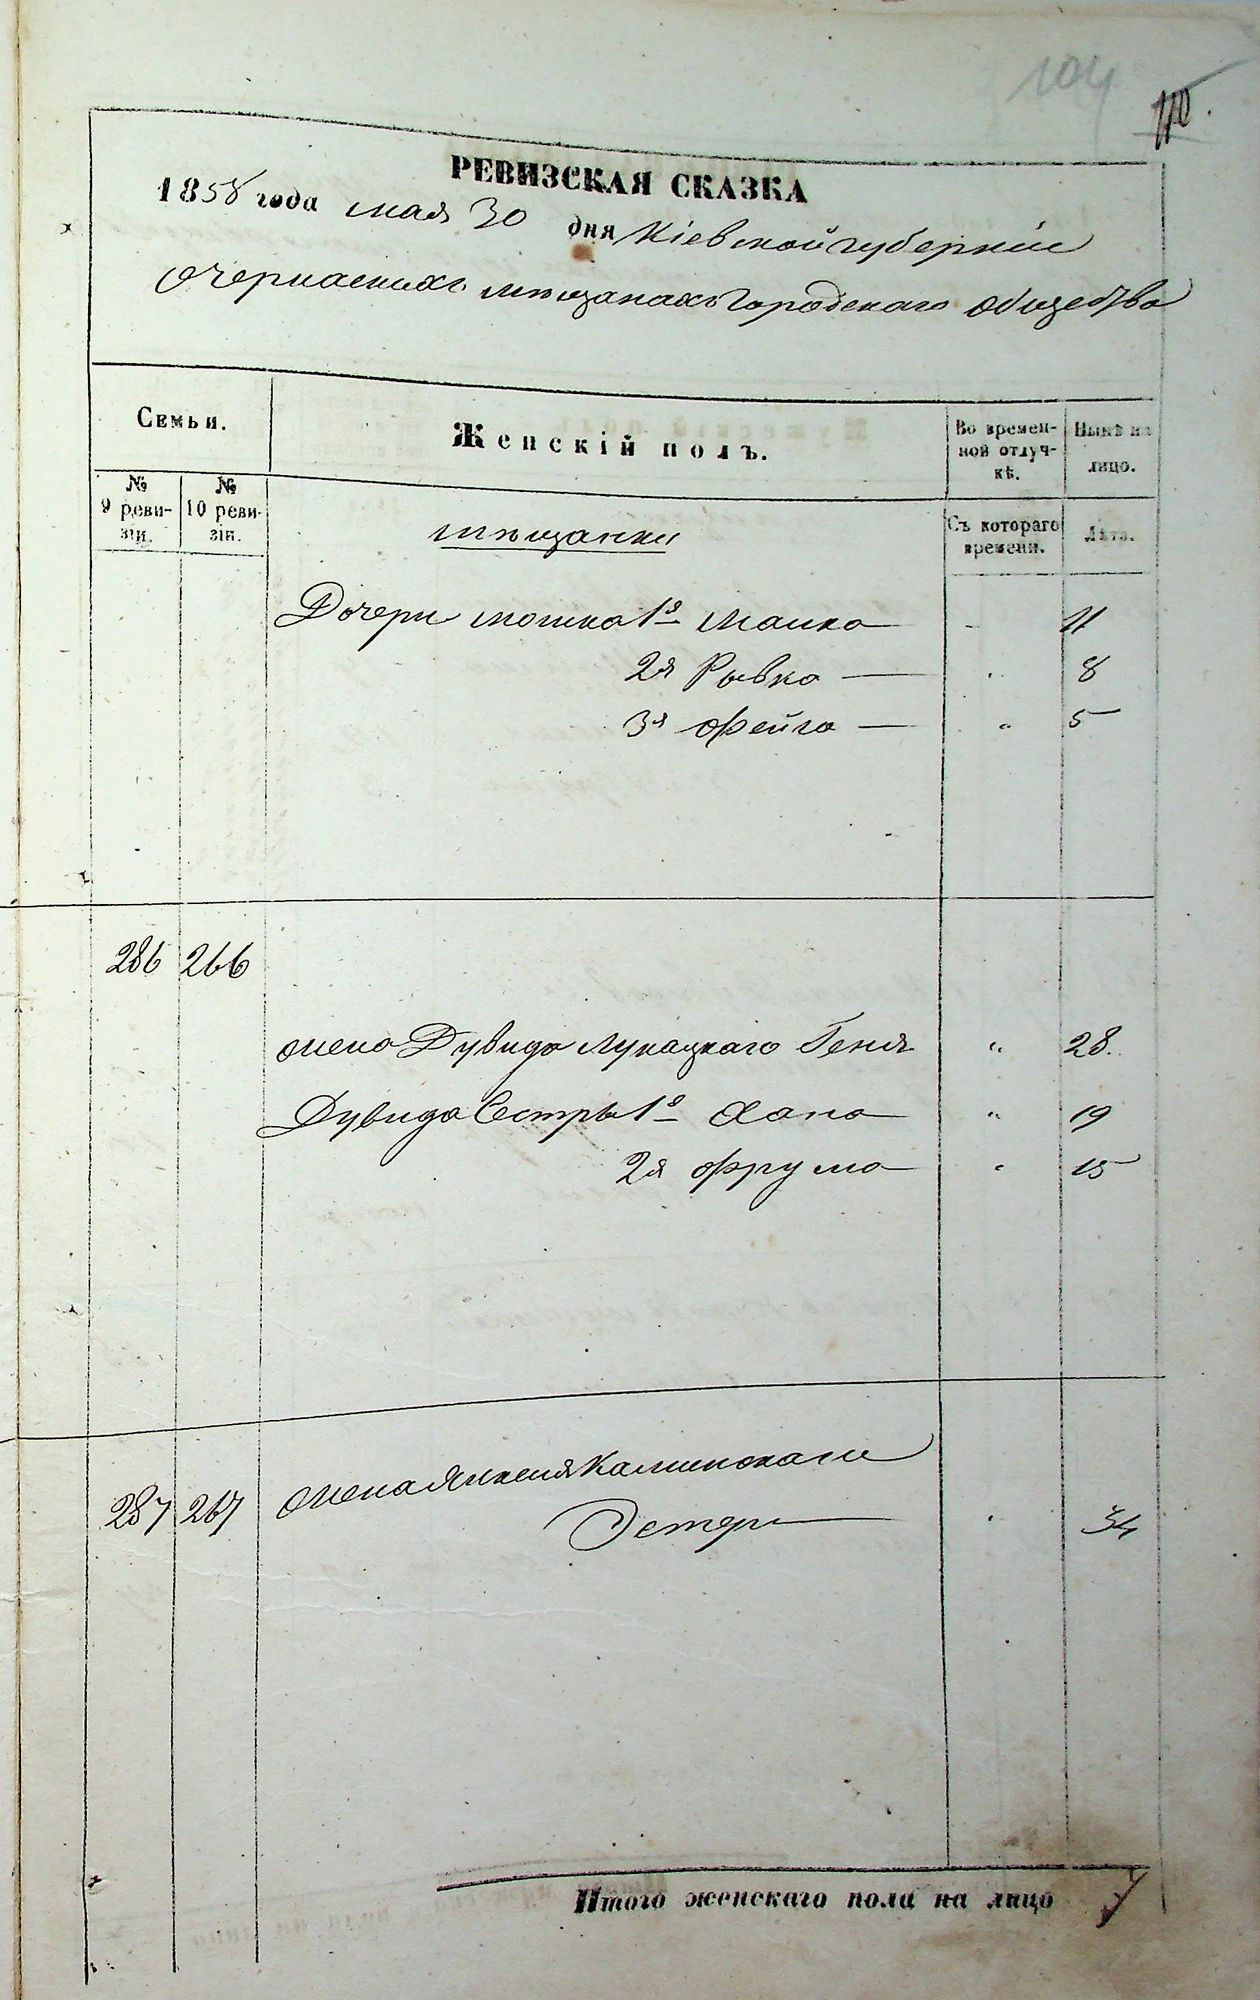 104
110.
РЕВИЗСКАЯ СКАЗКА
1858 года мая 30 дня Кіевской губерніи
О черкаскихъ мѣщанахъ городскаго общества
Семьи.
Женскій полъ.
Во времен-
ной отлуч-
кѣ.
Нынѣ на
лицо.
№
9 реви-
зіи.
№
10 реви-
зіи.
Съ котораго
времени.
Лѣта.
мѣщанки
Дочери Мошка 1я Малка — 11
2я Рывка — 8
3я Фейга — 5
286 266
жена Дувида Лукацкаго Геня " 28.
Дувида Сестры 1я Хана " 19
2я Фрума 15
287 267 жена Янкеля Калинскаго
Эстеръ 34
Итого женскаго пола на лицо 7